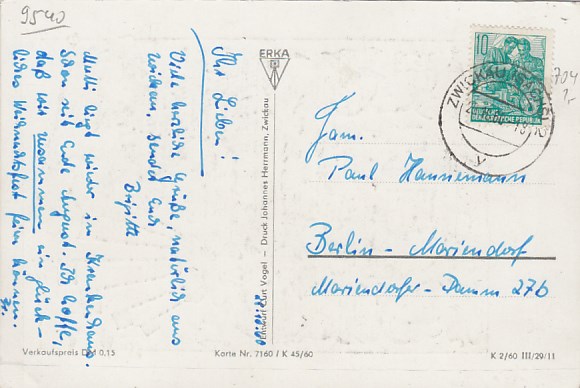 9540
Ihr Lieben!
Viele herzliche Grüße, natürlich aus
Zwickau, sendet Euch
Brigitte
Mutti liegt wieder im Krankenhaus.
Schon seit Ende August. Ich hoffe,
daß wir zusammen ein glück-
liches Weihnachtsfest feiern können.
Br.
ERKA
Entwurf Curt Vogel – Druck Johannes Herrmann, Zwickau
10
DEUTSCHE
DEMOKRATISCHE REPUBLIK
ZWICKAU (SACHS)
704
Fam.
Paul Hannemann
Berlin-Mariendorf
Mariendorfer-Damm 27b
Verkaufspreis DM 0,15
Karte Nr. 7160 / K 45/60
K 2/60 III/29/11